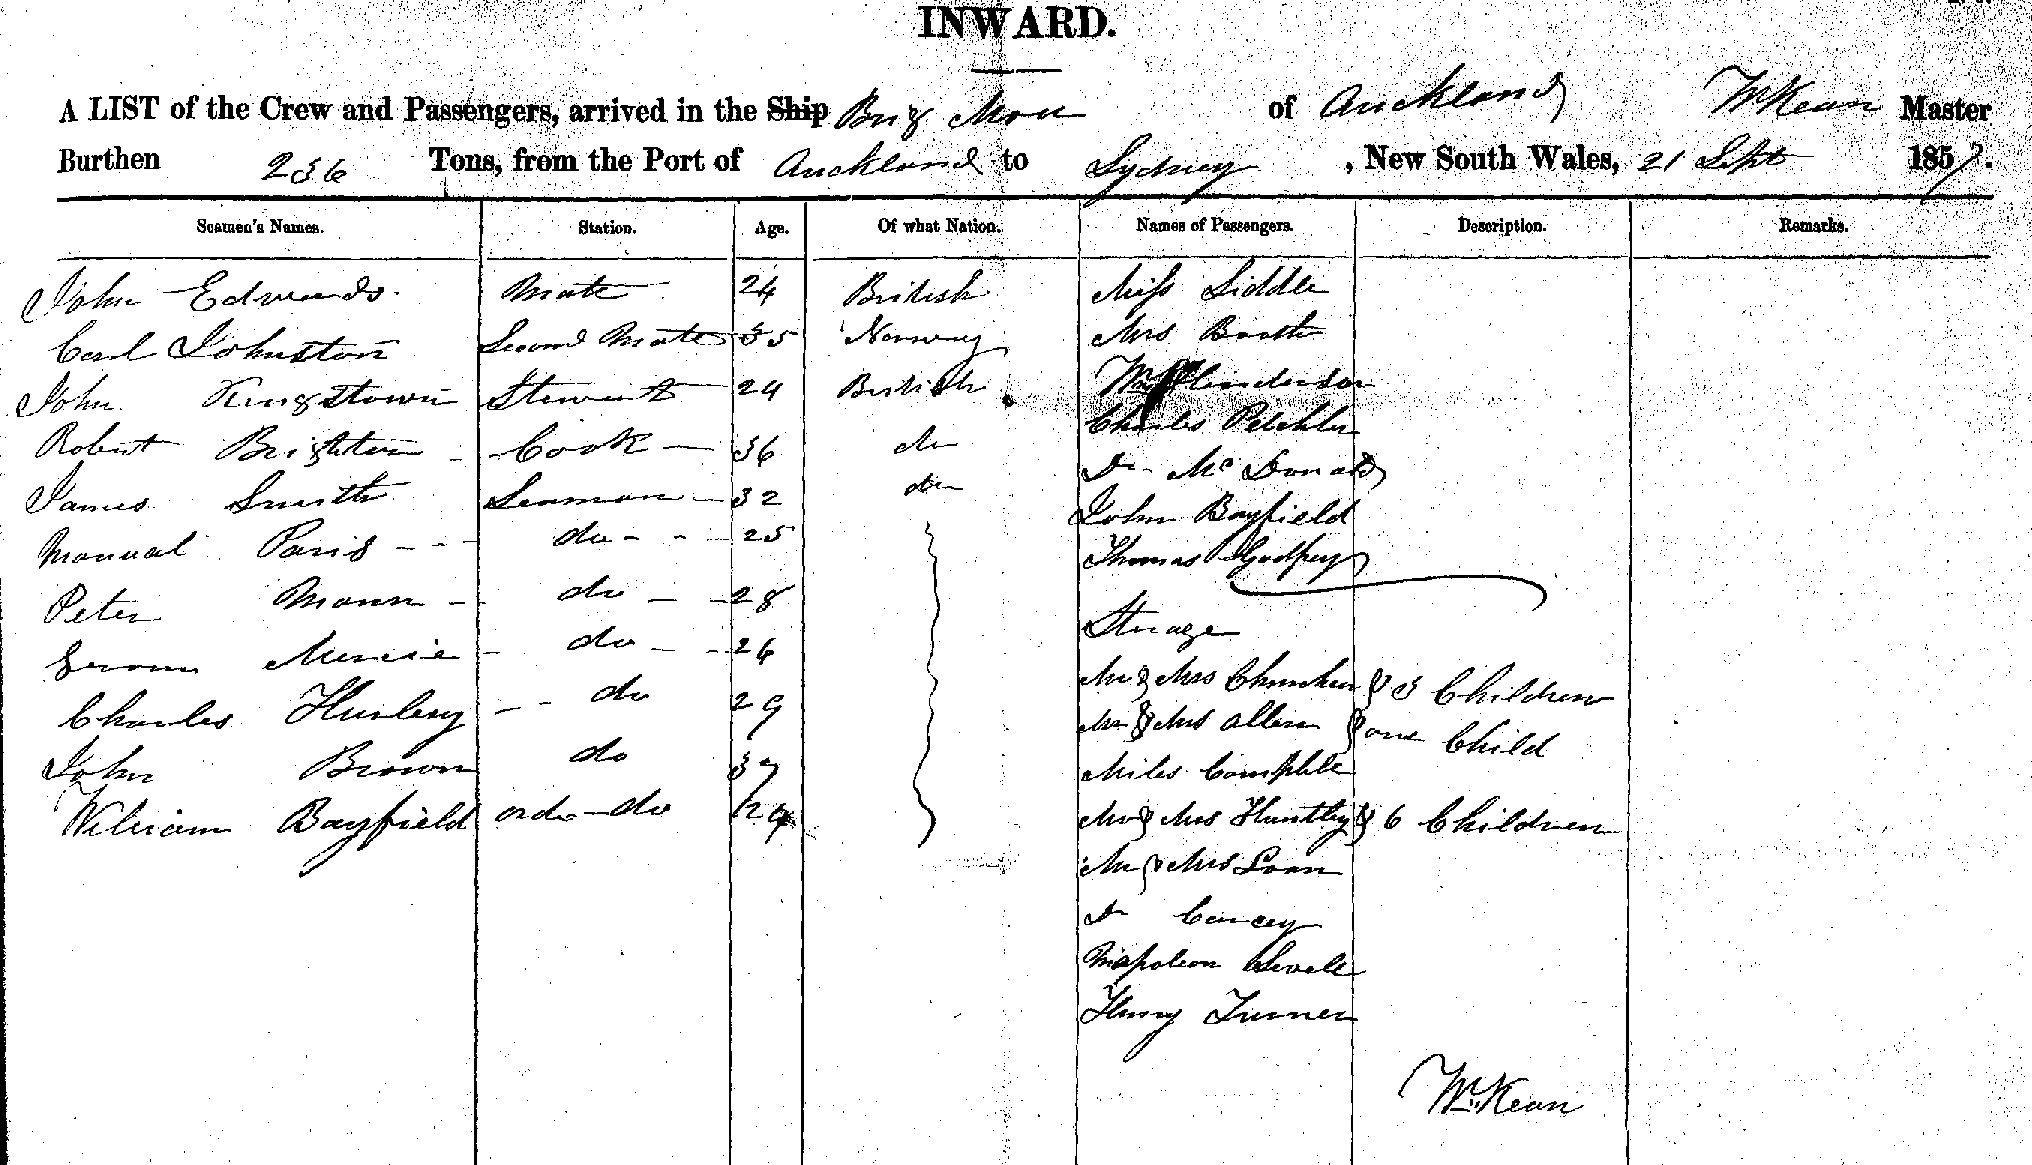 INWARD.
A LIST of the Crew and Passengers, arrived in the Ship Brig Moa of Auckland McKean Master
Burthen 236 Tons, from the Port of Auckland to Sydney, New South Wales, 21 Sept 1857.
Seamen's Names. Station. Age. Of what Nation. Names of Passengers. Description. Remarks.
John Edwards. Mate 24 British Miss Liddle
Carl Johnston Second Mate 35 Norway Mrs Booth
John Kingstown Steward 24 British Henderson
Robert Brighten Cook 36 do Charles
James Smith Seaman 32 do Dr McDonald
Manual Paris do 25 John Bayfield
Peter Mann do 28 Thomas Godfrey
Sterage
do 26 Mr & Mrs & 3 Children
Charles Hurley do 29 Mr & Mrs Allen & one Child
John Brown do 37 Miles
William Bayfield ord do Mr & Mrs Huntley & 6 Children
Mr & Mrs Loan
Napoleon
Henry Turner
McKean